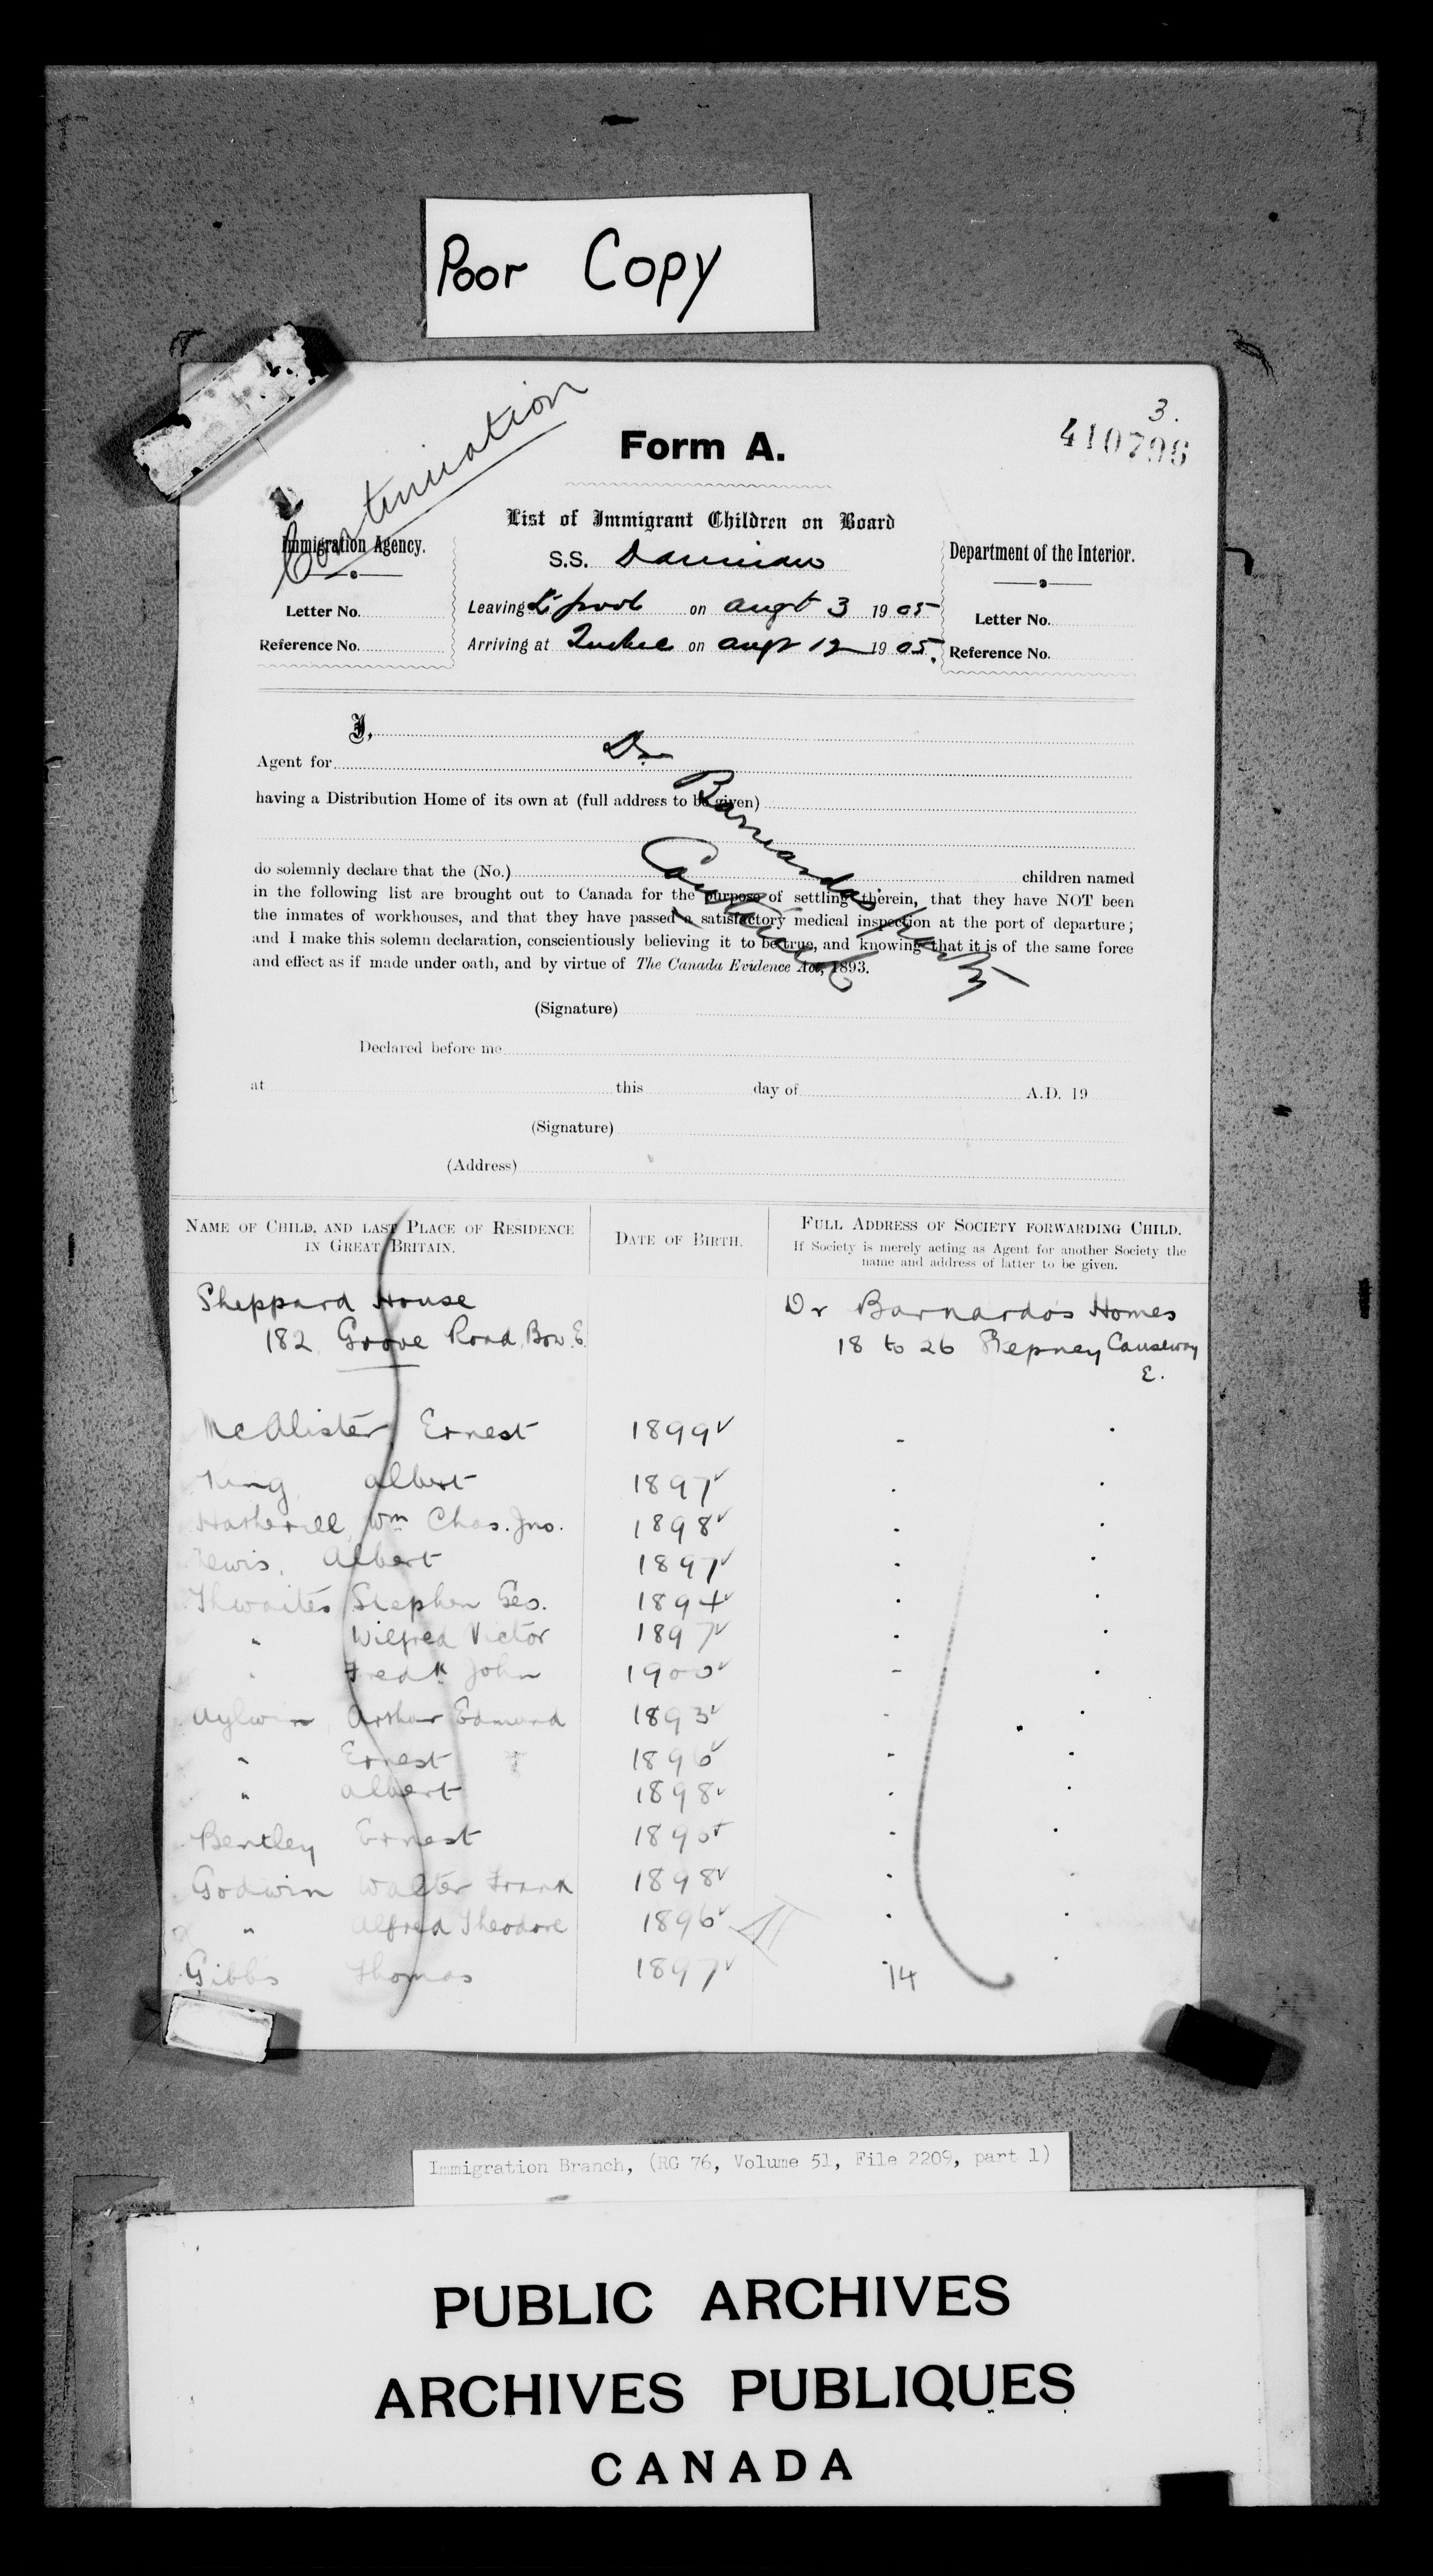 Poor Copy
Continuation
3.
410796
Form A.
List of Immigrant Children on Board
Immigration Agency.
S.S.
Department of the Interior.
Letter No.
Leaving L'pool on Augt 3 1905
Letter No.
Reference No.
Arriving at Quebec on Augt 12 1905.
Reference No.
I,
Agent for
having a Distribution Home of its own at (full address to be given)
Dr Barnardos
do solemnly declare that the (No.) children named
in the following list are brought out to Canada for the purpose of settling therein, that they have NOT been
the inmates of workhouses, and that they have passed a satisfactory medical inspection at the port of departure;
and I make this solemn declaration, conscientiously believing it to be true, and knowing that it is of the same force
and effect as if made under oath, and by virtue of The Canada Evidence Act, 1893.
(Signature)
Declared before me
at this day of A.D. 19
(Signature)
(Address)
NAME OF CHILD, AND LAST PLACE OF RESIDENCE IN GREAT BRITAIN.
DATE OF BIRTH.
FULL ADDRESS OF SOCIETY FORWARDING CHILD.
If Society is merely acting as Agent for another Society the name and address of latter to be given.
Sheppard House
182 Grove Road, Bow. E.
Dr Barnardo's Homes
18 to 26 Stepney Causeway
E.
McAlister, Ernest 1899
King Albert 1897
Hatherill, Wm Chas. Jno. 1898
Lewis, Albert 1897
Thwaites Stephen Geo. 1894
" Wilfred Victor 1897
" Fredk John 1900
Aylwin Arthur Edmund 1893
" Ernest 1896
" Albert 1898
Bentley Ernest
Godwin Walter Frank 1898
" Alfred Theodore 1896
Gibbs Thomas 1897
14
Immigration Branch, (RG 76, Volume 51, File 2209, part 1)
PUBLIC ARCHIVES
ARCHIVES PUBLIQUES
CANADA